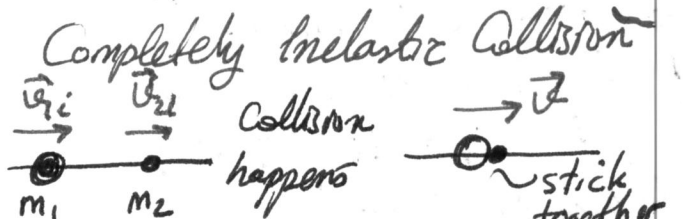 Completely Inelastic Collision
v⃗₁ᵢ v⃗₂ᵢ Collision v⃗
happens stick
m₁ m₂ together